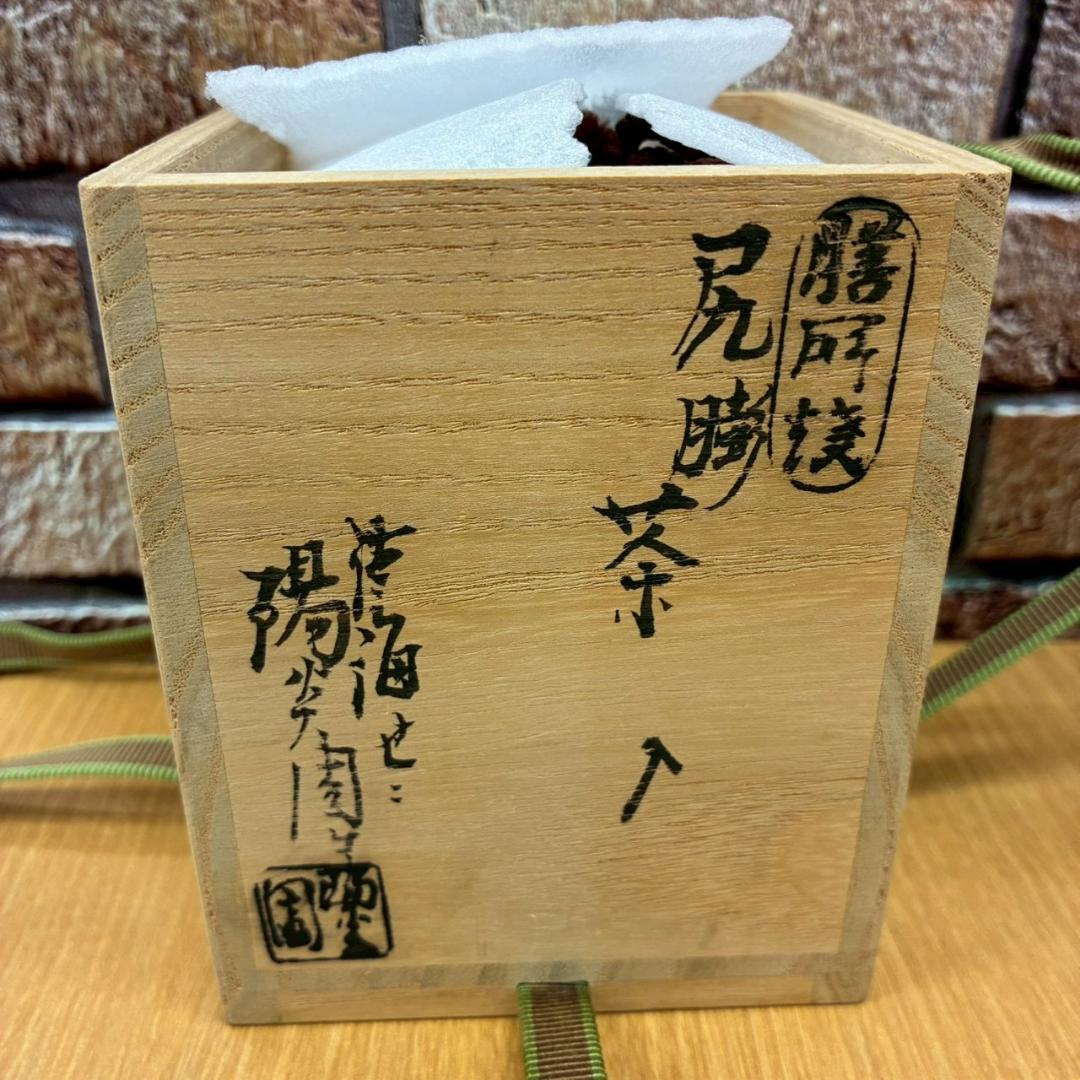 膳所焼
尻膨
茶入
淡海せゞ
陽炎園
陽炎園